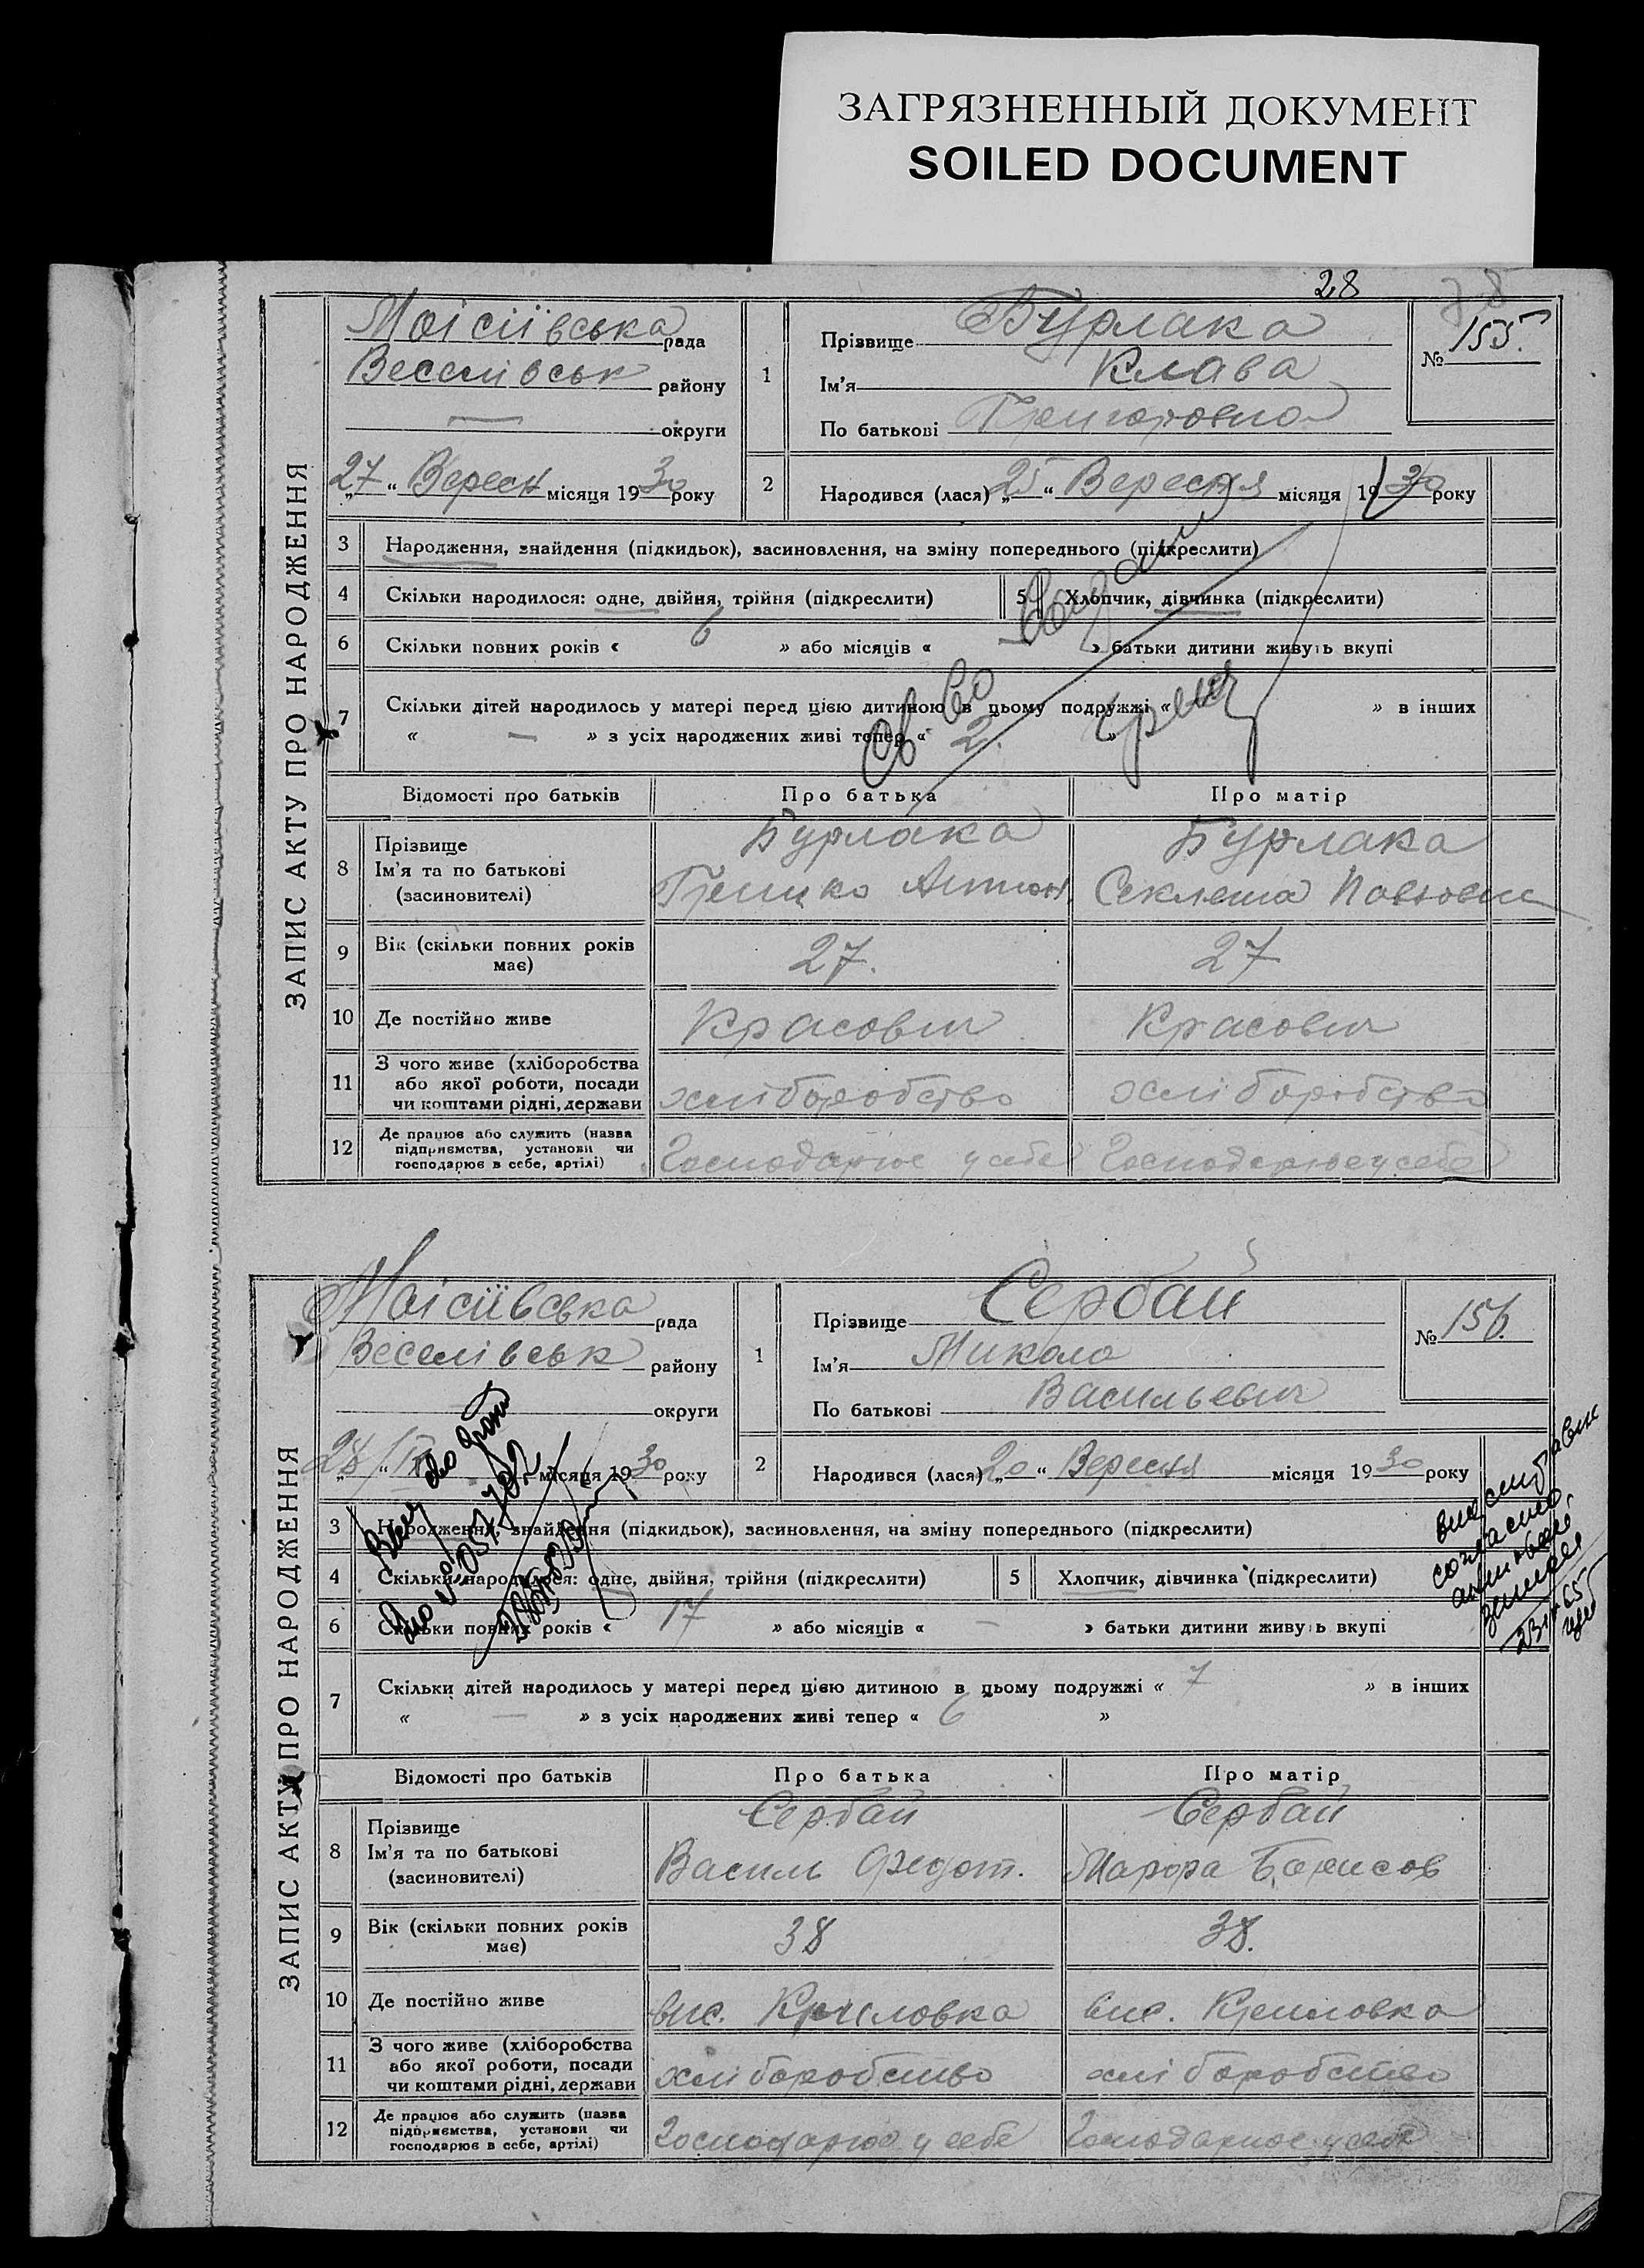 ЗАГРЯЗНЕННЫЙ ДОКУМЕНТ
SOILED DOCUMENT
28
ЗАПИС АКТУ ПРО НАРОДЖЕННЯ
Моісіївська рада
Веселівськ району
— округи
„27“ Вересн місяця 1930 року
1
Прізвище Бурлака
Ім'я Клава
По батькові
№ 155.
2
Народився (лася) „25“ Вересня місяця 1930 року
3 Народження, знайдення (підкидьок), засиновлення, на зміну попереднього (підкреслити)
4 Скільки народилося: одне, двійня, трійня (підкреслити)
5 Хлопчик, дівчинка (підкреслити)
6 Скільки повних років « 6 » або місяців « » батьки дитини живуть вкупі
7 Скільки дітей народилось у матері перед цією дитиною в цьому подружжі « » в інших
« — » з усіх народжених живі тепер « 2. »
Відомості про батьків Про батька Про матір
8 Прізвище
Ім'я та по батькові
(засновителі)
Бурлака
Грицько Антон.
Бурлака
Секлета
9 Вік (скільки повних років має) 27. 27
10 Де постійно живе
11 З чого живе (хліборобства
або якої роботи, посади
чи коштами рідні, держави
хліборобство хліборобство
12 Де працює або служить (назва
підприємства, установи чи
господарює в себе, артілі)
Господарює у себе Господарює у себе
ЗАПИС АКТУ ПРО НАРОДЖЕННЯ
Моісіївська рада
Веселівськ району
округи
„28“ IX місяця 1930 року
1
Прізвище Сербай
Ім'я Микола
По батькові Васильевич
№ 156.
2
Народився (лася) „20“ Вересня місяця 1930 року
3 Народження, знайдення (підкидьок), засиновлення, на зміну попереднього (підкреслити)
4 Скільки народилося: одне, двійня, трійня (підкреслити)
5 Хлопчик, дівчинка (підкреслити)
6 Скільки повних років « 17 » або місяців « — » батьки дитини живуть вкупі
7 Скільки дітей народилось у матері перед цією дитиною в цьому подружжі « 7 » в інших
« — » з усіх народжених живі тепер « 6 »
Відомості про батьків Про батька Про матір
8 Прізвище
Ім'я та по батькові
(засиновителі)
Сербай
Василь Федот.
Сербай
Борисов
9 Вік (скільки повних років має) 38 38.
10 Де постійно живе вис. Криловка вис. Криловка
11 З чого живе (хліборобства
або якої роботи, посади
чи коштами рідні, держави
хліборобство хліборобство
12 Де працює або служить (назва
підприємства, установи чи
господарює в себе, артілі)
Господарює у себе Господарює у себе